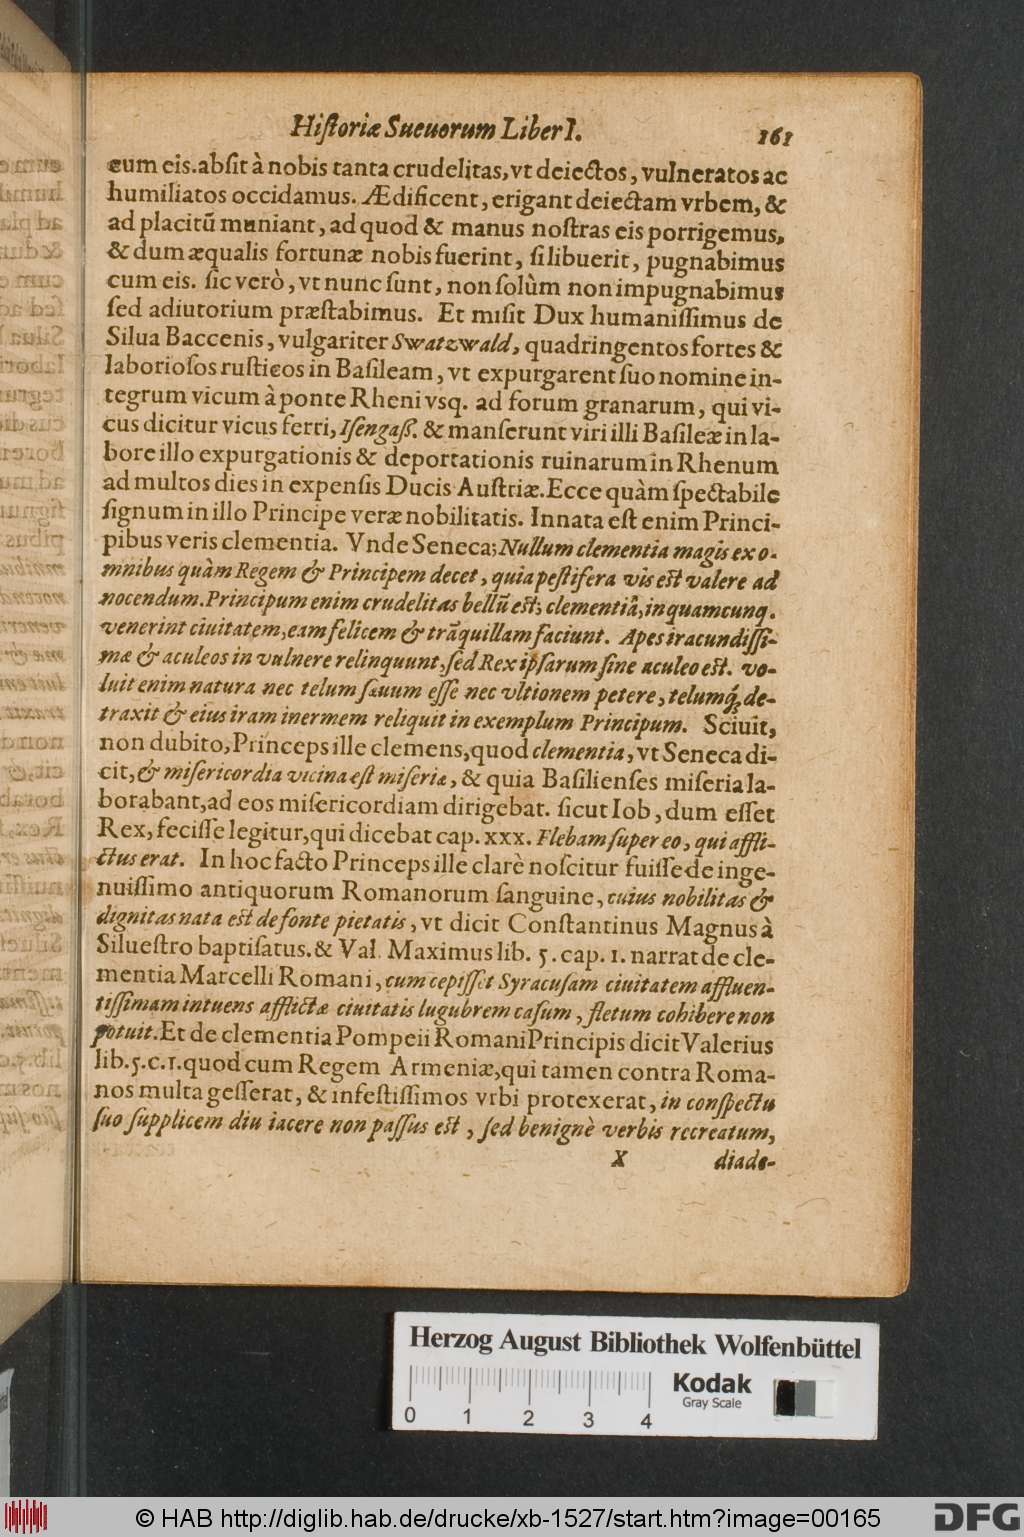 Hiſtoriæ Sueuorum Liber I. 161
cum eis. abſit à nobis tanta crudelitas, vt deiectos, vulneratos ac
humiliatos occidamus. Ædificent, erigant deiectam vrbem, &
ad placitū muniant, ad quod & manus noſtras eis porrigemus,
& dum æqualis fortunæ nobis fuerint, ſi libuerit, pugnabimus
cum eis. ſic verò, vt nunc ſunt, non ſolùm non impugnabimus
ſed adiutorium præſtabimus. Et miſit Dux humaniſſimus de
Silua Baccenis, vulgariter Swatzwald, quadringentos fortes &
laborioſos ruſticos in Baſileam, vt expurgarent ſuo nomine in-
tegrum vicum à ponte Rheni vsq. ad forum granarum, qui vi-
cus dicitur vicus ferri, Iſengaſſ. & manſerunt viri illi Baſileæ in la-
bore illo expurgationis & deportationis ruinarum in Rhenum
ad multos dies in expenſis Ducis Auſtriæ. Ecce quàm ſpectabile
ſignum in illo Principe veræ nobilitatis. Innata eſt enim Princi-
pibus veris clementia. Vnde Seneca; Nullum clementia magis ex o-
mnibus quàm Regem & Principem decet, quia peſtifera vis eſt valere ad
nocendum. Principum enim crudelitas bellū eſt; clementiā, in quamcunq.
venerint ciuitatem, eam felicem & trāquillam faciunt. Apes iracundiſſi-
mæ & aculeos in vulnere relinquunt, ſed Rex ipſarum ſine aculeo eſt. vo-
luit enim natura nec telum ſæuum eſſe nec vltionem petere, telumq́; de-
traxit & eius iram inermem reliquit in exemplum Principum. Sciuit,
non dubito, Princeps ille clemens, quod clementia, vt Seneca di-
cit, & miſericordia vicina eſt miſeriæ, & quia Baſilienſes miſeria la-
borabant, ad eos miſericordiam dirigebat. ſicut Iob, dum eſſet
Rex, feciſſe legitur, qui dicebat cap. xxx. Flebam ſuper eo, qui affli-
ctus erat. In hoc facto Princeps ille clarè noſcitur fuiſſe de inge-
nuiſſimo antiquorum Romanorum ſanguine, cuius nobilitas &
dignitas nata eſt de fonte pietatis, vt dicit Conſtantinus Magnus à
Silueſtro baptiſatus. & Val. Maximus lib. 5. cap. 1. narrat de cle-
mentia Marcelli Romani, cum cepiſſet Syracuſam ciuitatem affluen-
tiſſimam intuens afflictæ ciuitatis lugubrem caſum, fletum cohibere non
potuit. Et de clementia Pompeii Romani Principis dicit Valerius
lib. 5. c. 1. quod cum Regem Armeniæ, qui tamen contra Roma-
nos multa geſſerat, & infeſtiſſimos vrbi protexerat, in conſpectu
ſuo ſupplicem diu iacere non paſſus eſt, ſed benignè verbis recreatum,
X diade-
Herzog August Bibliothek Wolfenbüttel
Kodak
Gray Scale
0 1 2 3 4
© HAB http://diglib.hab.de/drucke/xb-1527/start.htm?image=00165
DFG